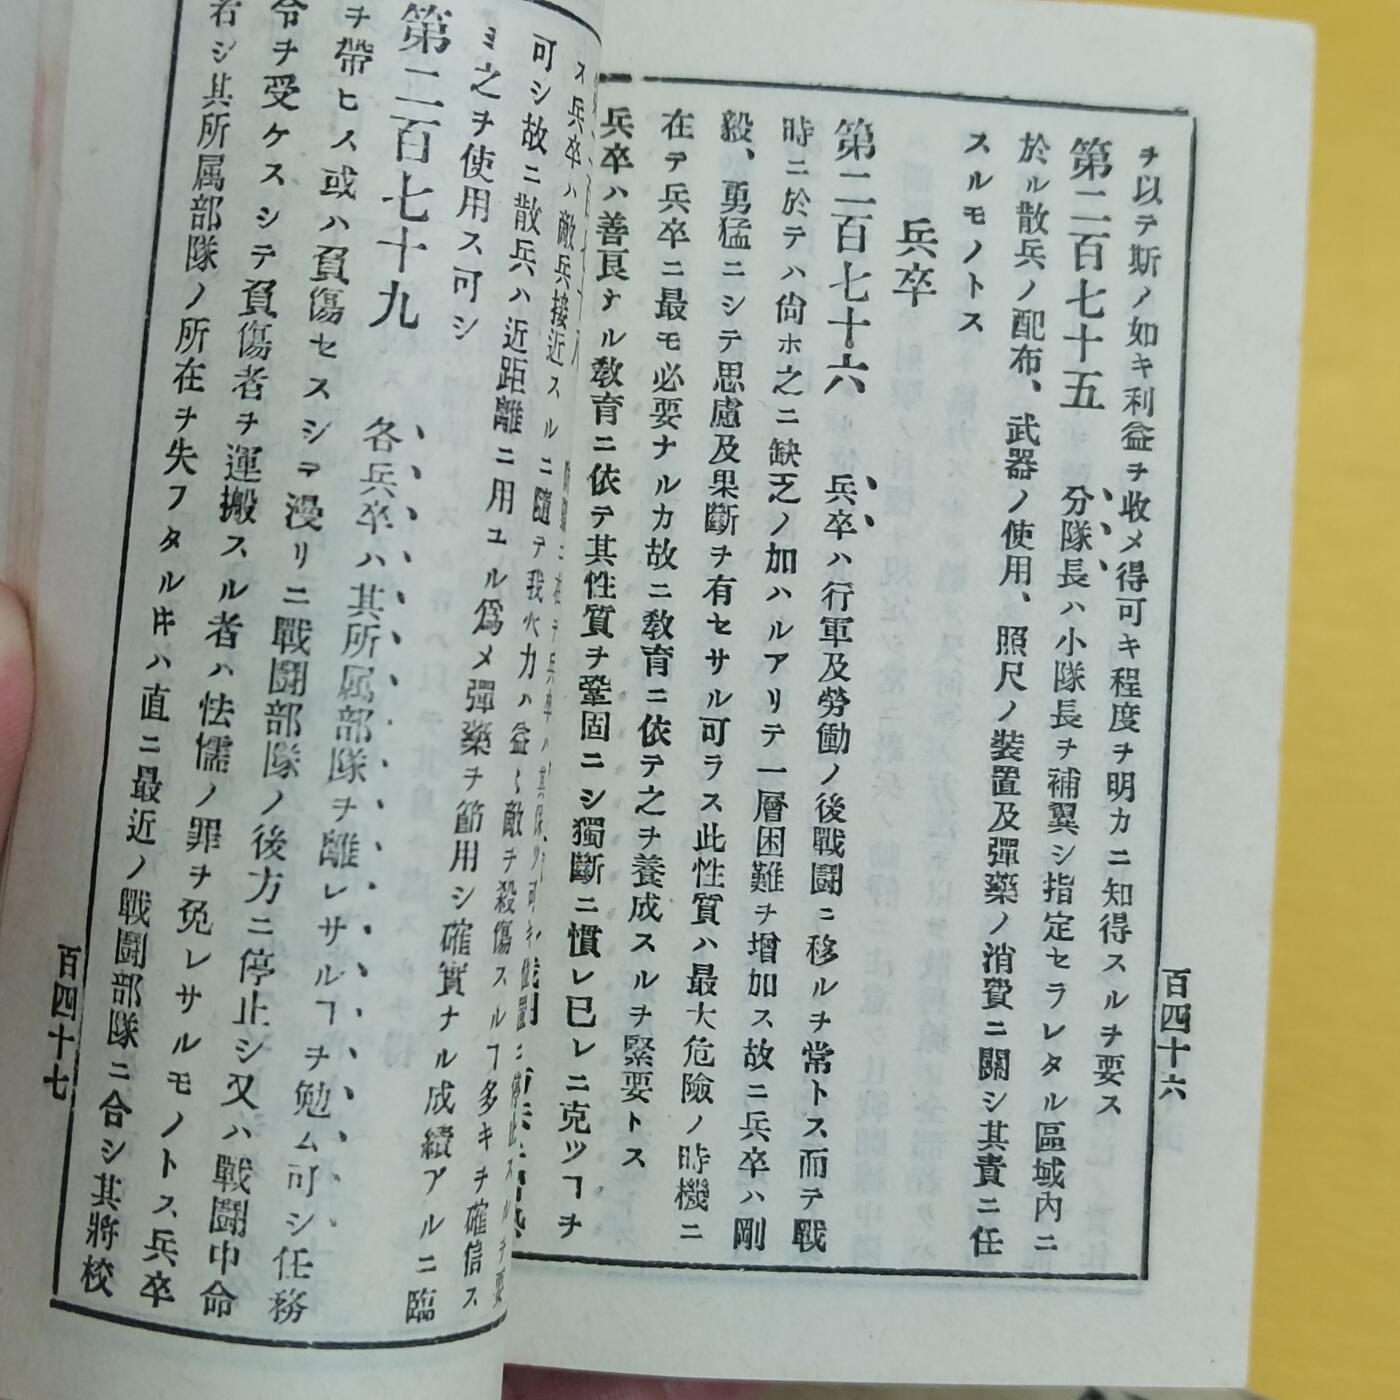 ヲ以テ斯ノ如キ利益ヲ收メ得可キ程度ヲ明カニ知得スルヲ要ス
第二百七十五　分隊長ハ小隊長ヲ補翼シ指定セラレタル區域內ニ
於ル散兵ノ配布、武器ノ使用、照尺ノ裝置及彈藥ノ消費ニ關シ其責ニ任
スルモノトス
兵卒
第二百七十六　兵卒ハ行軍及勞働ノ後戰鬪ニ移ルヲ常トス而テ戰
時ニ於テハ尙ホ之ニ缺乏ノ加ハルアリテ一層困難ヲ增加ス故ニ兵卒ハ剛
毅、勇猛ニシテ思慮及果斷ヲ有セサル可ラス此性質ハ最大危險ノ時機ニ
在テ兵卒ニ最モ必要ナルカ故ニ敎育ニ依テ之ヲ養成スルヲ緊要トス
兵卒ハ善良ナル敎育ニ依テ其性質ヲ鞏固ニシ獨斷ニ慣レ已レニ克ツヿヲ
百四十六
ス兵卒ハ敵兵接近スルニ隨テ我火力ハ益〻敵ヲ殺傷スルヿ多キヲ確信ス
可シ故ニ散兵ハ近距離ニ用ユル爲メ彈藥ヲ節用シ確實ナル成績アルニ臨
ミ之ヲ使用ス可シ
第二百七十九　各兵卒ハ其所属部隊ヲ離レサルヿヲ勉ム可シ任務
ヲ帶ヒス或ハ負傷セスシテ漫リニ戰鬪部隊ノ後方ニ停止シ又ハ戰鬪中命
令ヲ受ケスシテ負傷者ヲ運搬スル者ハ怯懦ノ罪ヲ免レサルモノトス兵卒
若シ其所属部隊ノ所在ヲ失フタルㇳキハ直ニ最近ノ戰鬪部隊ニ合シ其將校
百四十七